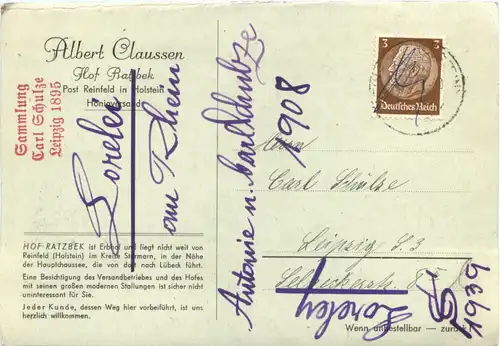 Albert Claussen
Hof Ratzbek
Post Reinfeld in Holstein
Honigversand
Sammlung
Carl Schulze
Leipzig 1895
Loreley
am Rhein
Antonie u Karl Schulze
1908
3 3
Deutsches Reich
Carl Schulze
Leipzig S. 3
HOF RATZBEK ist Erbhof und liegt nicht weit von
Reinfeld (Holstein) im Kreise Stormarn, in der Nähe
der Hauptchaussee, die von dort nach Lübeck führt.
Eine Besichtigung des Versandbetriebes und des Hofes
mit seinen großen modernen Stallungen ist sicher nicht
uninteressant für Sie.
Jeder Kunde, dessen Weg hier vorbeiführt, ist uns
herzlich willkommen.
Loreley
1939
Wenn unbestellbar — zurück!